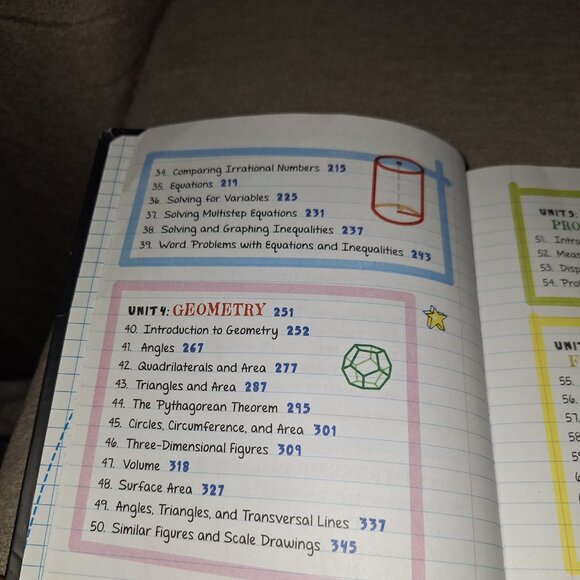 34. Comparing Irrational Numbers 215
35. Equations 219
36. Solving for Variables 225
37. Solving Multistep Equations 231
38. Solving and Graphing Inequalities 237
39. Word Problems with Equations and Inequalities 243
UNIT 4: GEOMETRY 251
40. Introduction to Geometry 252
41. Angles 267
42. Quadrilaterals and Area 277
43. Triangles and Area 287
44. The Pythagorean Theorem 295
45. Circles, Circumference, and Area 301
46. Three-Dimensional Figures 309
47. Volume 318
48. Surface Area 327
49. Angles, Triangles, and Transversal Lines 337
50. Similar Figures and Scale Drawings 345
UNIT 5:
51.
52.
53.
54.
55.
56.
57.